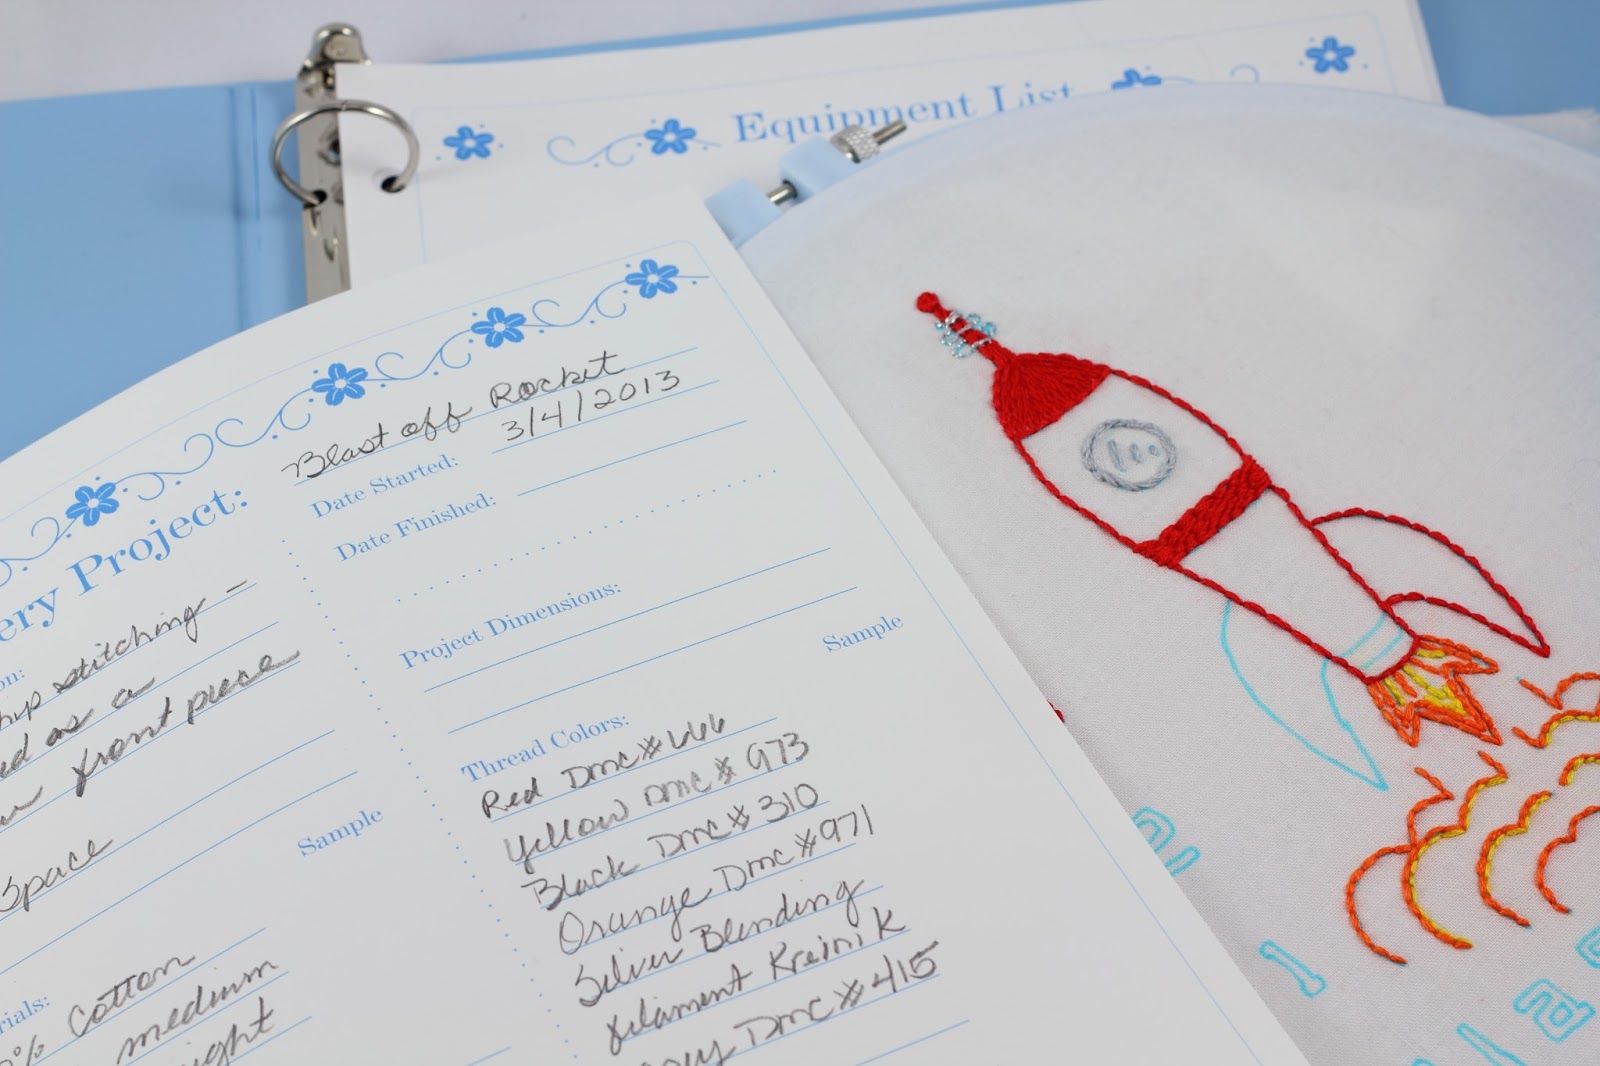 Equipment List
Blast off Rocket
Date Started: 3/4/2013
Date Finished:
ery Project:
on:
stitching -
ed as a
front piece
Space
Sample
rials:
% Cotton
medium
ight
Project Dimensions:
Sample
Thread Colors:
Red DMC #666
Yellow DMC # 973
Black DMC # 310
Orange DMC #971
Silver Blending
filament Kreinik
rey DMC #415